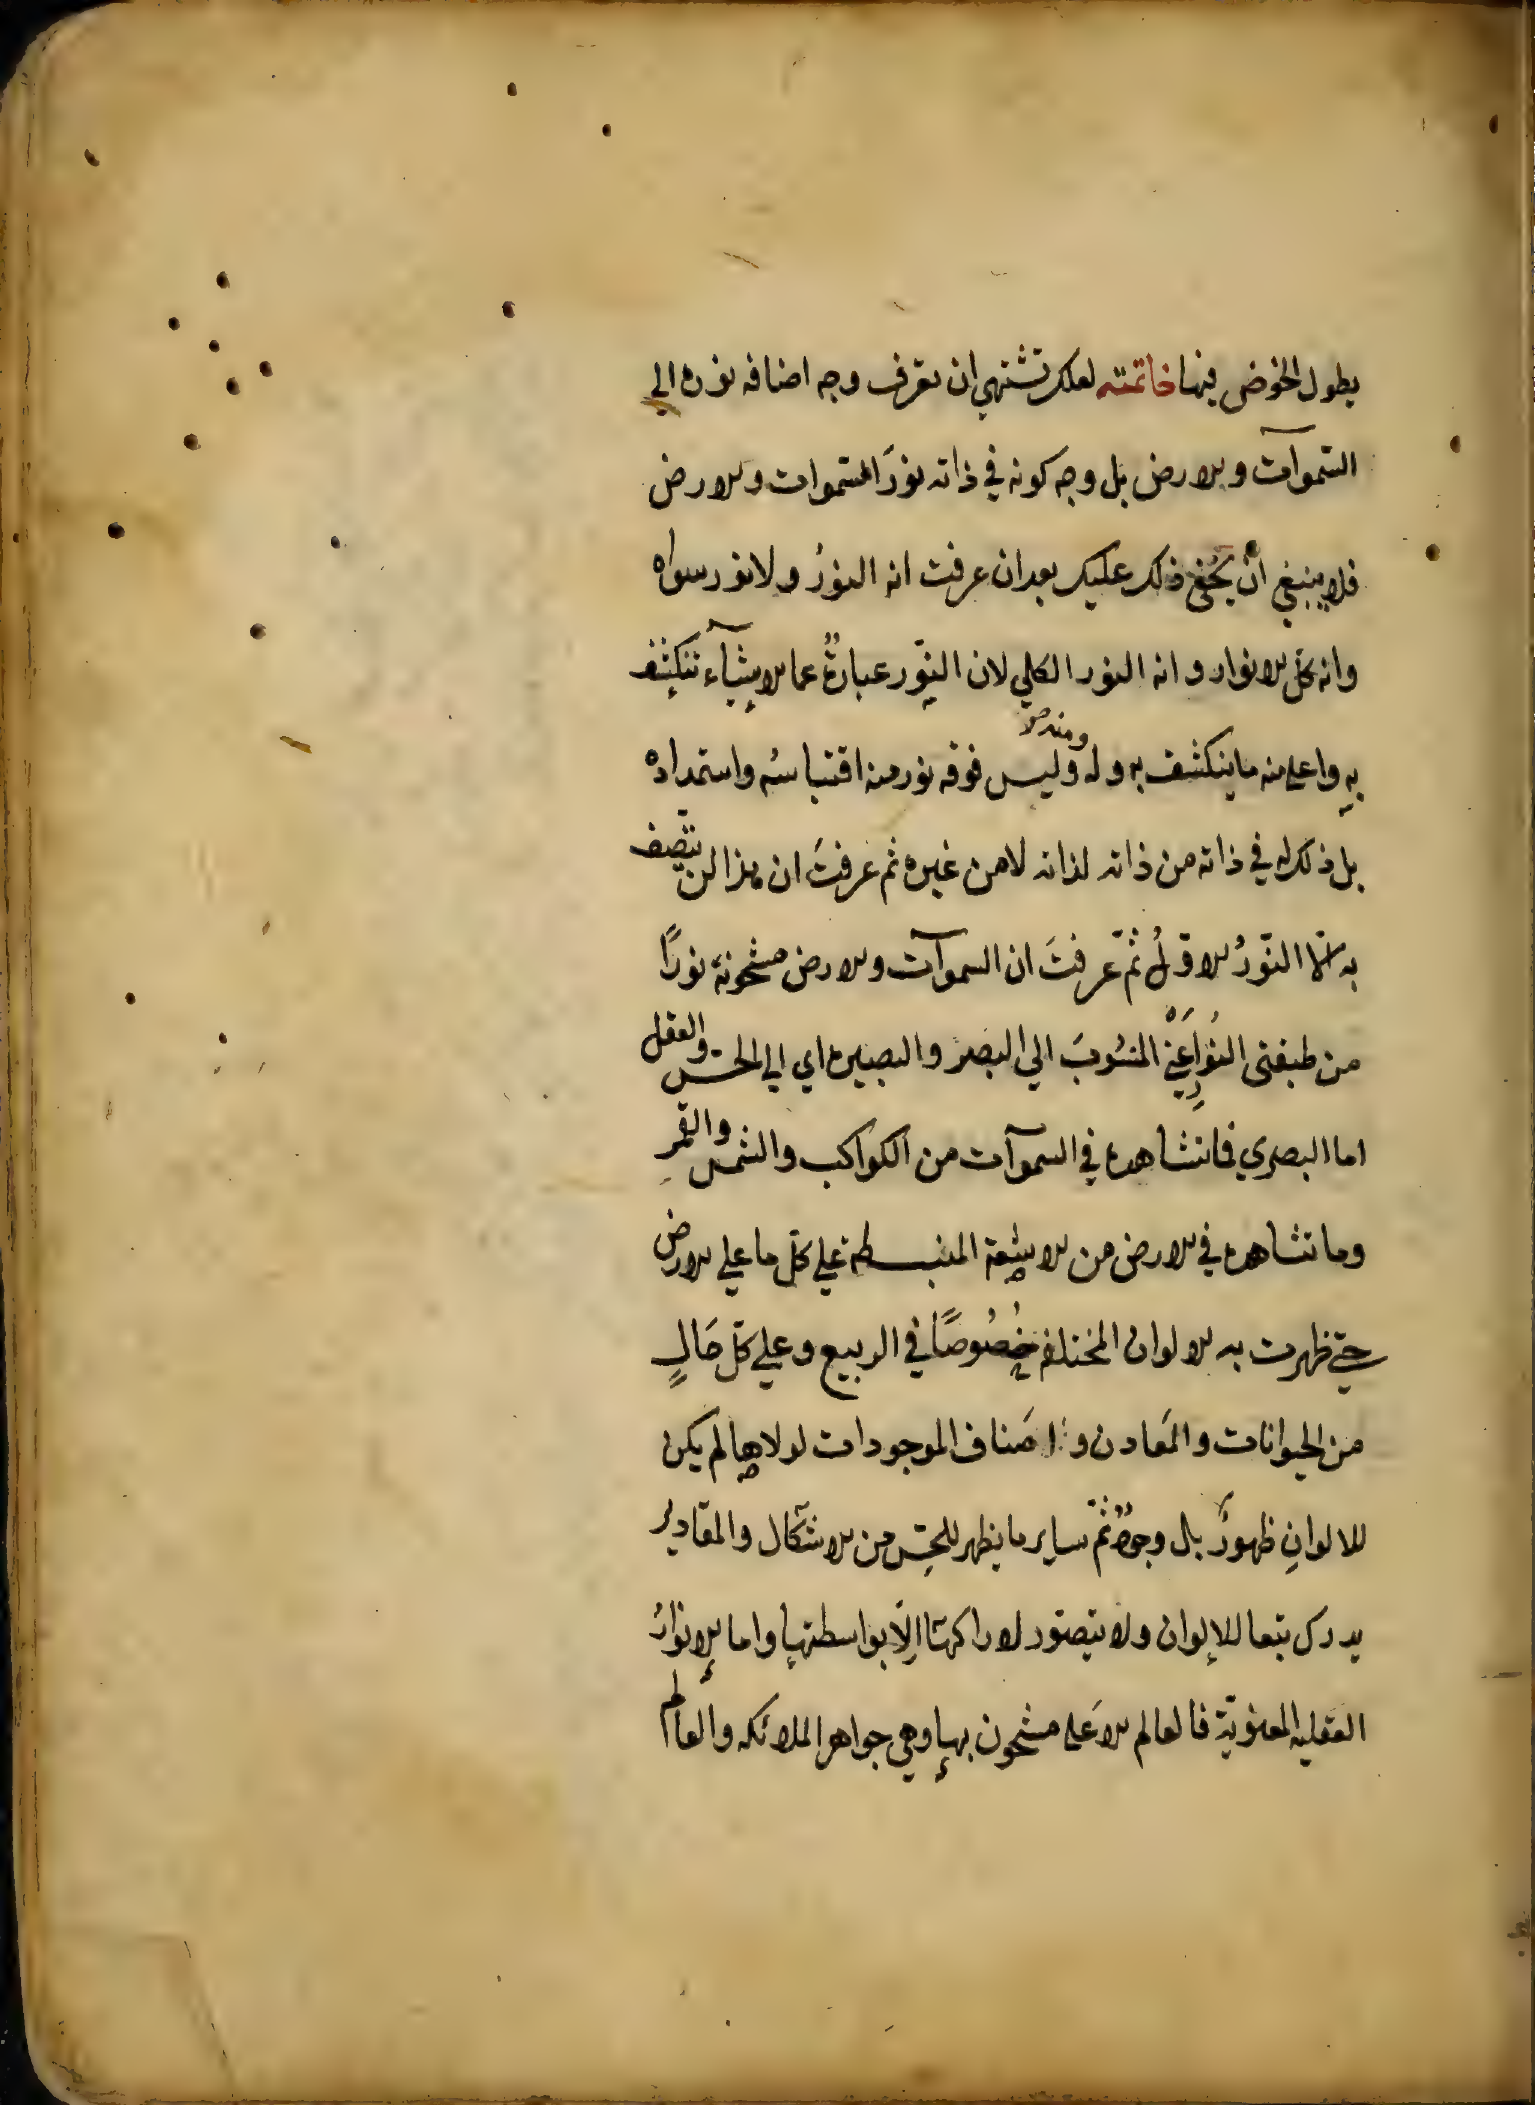 يطول الخوض فيها خاتمته لعلك تشتهي ان تعرف وجه اضافه نوره الي
السّموآت والارض بل وجه كونه في ذاته نورَ السّموات والارض
فلا ينبغي أن يخفى ذلك عليك بعد ان عرفت انه النورُ ولا نور سواه
وانه كلّ الانوار وانه النور الكلي لان النّور عبارةٌ عما الاشيآء تنكشف
بهِ واعلى منه ما ينكشف به وله ومنه وليس فوقه نور منه اقتباسُه واستمداده
بل ذلك له في ذاته من ذاته لذاته لا من غيره ثم عرفتَ ان هذا لن يتّصف
به الّا النّورُ الاوّلُ ثمّ عرفتَ ان السموآت والارض مشحونة نورًا
من طبقتى النُور اَعْنِي المنسُوبَ الي البصر والبصيره اي الي الحس والعقل
اما البصري فما تشاهده في السموآت من الكواكب والشمس والقمر
وما تشاهده في الارض من الاشعة المنبسطه على كلّ ما على الارض
حتي ظهرت به الالوان المختلفه خُصُوصًا في الربيع وعلي كلّ حَالٍ
من الحيوانات والمَعادن واصَناف الموجودات لولاها لم يكن
للالوانِ ظهورٌ بل وجودٌ ثمّ ساير ما يظهر للحِسّ من الاشكال والمقادير
يدرك تبعا للالوان ولا يتصوّر ادراكها اِلّا بواسطتها واما الانوارُ
العَقليه المعنويّة فالعالم الاَعلى مشحون بها وهي جواهر الملائكه والعالم